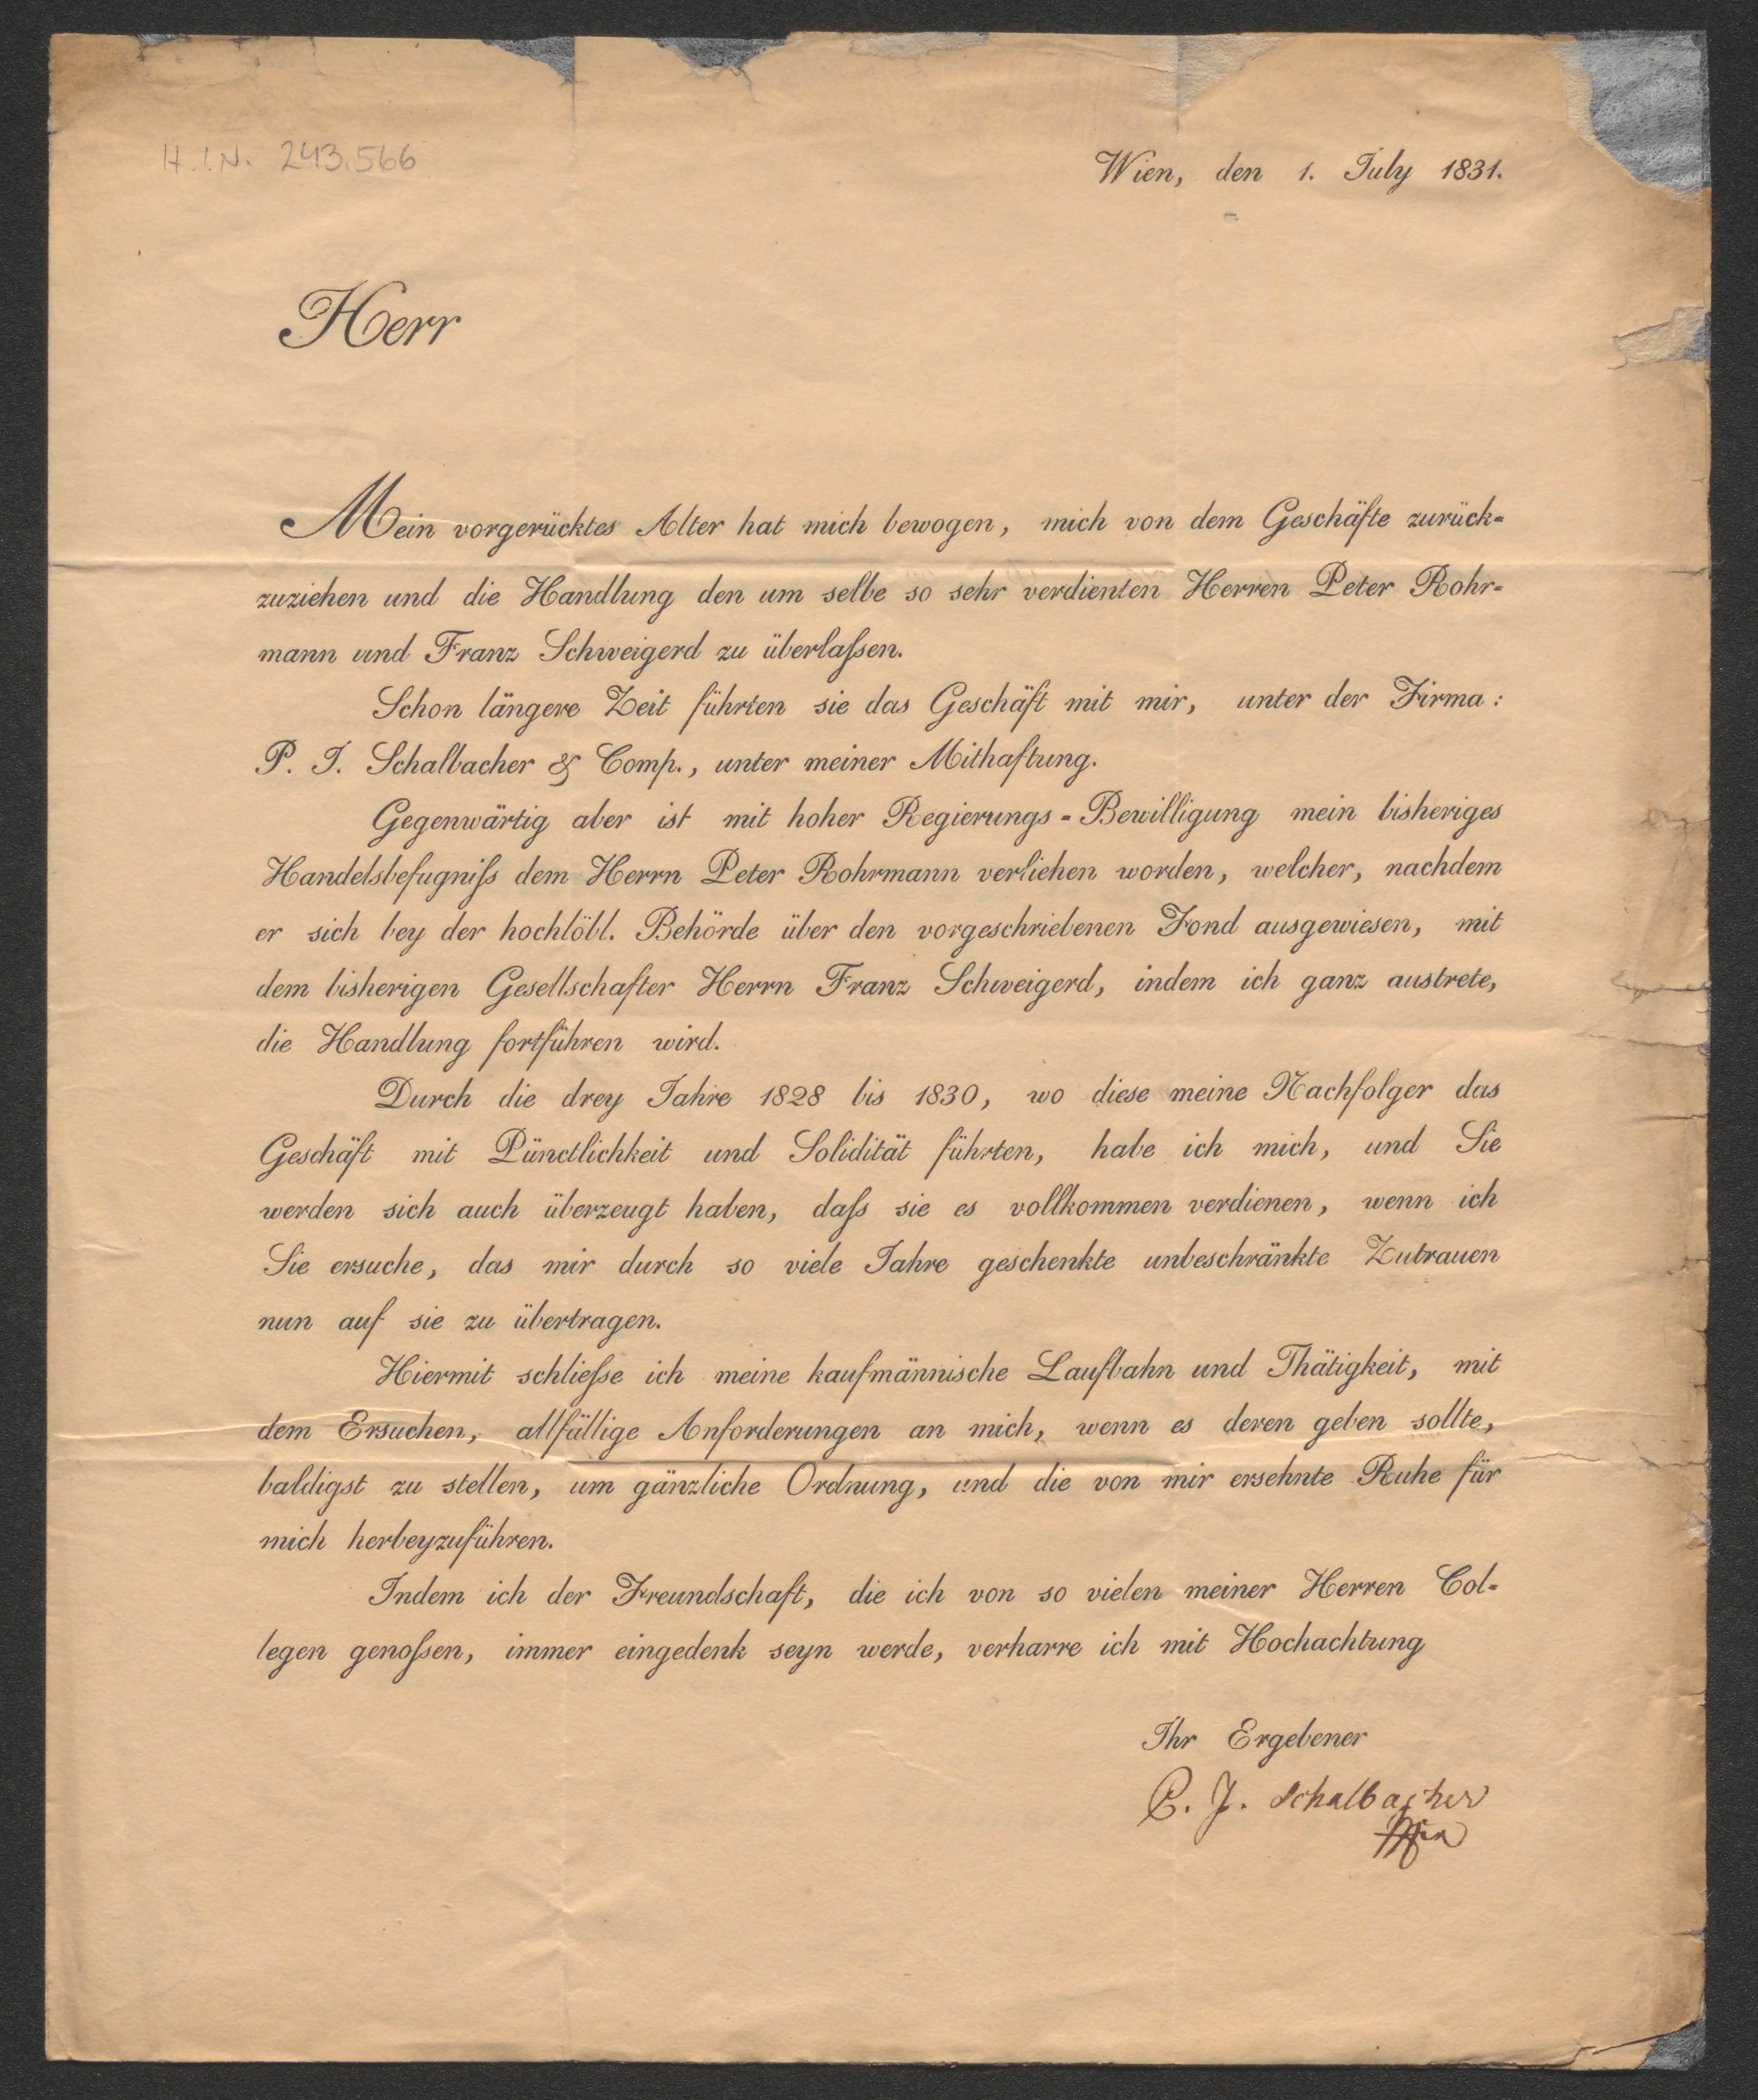 H.I.N. 243.566
Wien, den 1. July 1831.
Herr
Mein vorgerücktes Alter hat mich bewogen, mich von dem Geschäfte zurück-
zuziehen und die Handlung den um selbe so sehr verdienten Herren Peter Rohr-
mann und Franz Schweigerd zu überlaſsen.
Schon längere Zeit führten sie das Geschäft mit mir, unter der Firma:
P. J. Schalbacher & Comp., unter meiner Mithaftung.
Gegenwärtig aber ist mit hoher Regierungs-Bewilligung mein bisheriges
Handelsbefugniſs dem Herrn Peter Rohrmann verliehen worden, welcher, nachdem
er sich bey der hochlöbl. Behörde über den vorgeschriebenen Fond ausgewiesen, mit
dem bisherigen Gesellschafter Herrn Franz Schweigerd, indem ich ganz austrete,
die Handlung fortführen wird.
Durch die drey Jahre 1828 bis 1830, wo diese meine Nachfolger das
Geschäft mit Pünctlichkeit und Solidität führten, habe ich mich, und Sie
werden sich auch überzeugt haben, daſs sie es vollkommen verdienen, wenn ich
Sie ersuche, das mir durch so viele Jahre geschenkte unbeschränkte Zutrauen
nun auf sie zu übertragen.
Hiermit schlieſse ich meine kaufmännische Laufbahn und Thätigkeit, mit
dem Ersuchen, allfällige Anforderungen an mich, wenn es deren geben sollte,
baldigst zu stellen, um gänzliche Ordnung, und die von mir ersehnte Ruhe für
mich herbeyzuführen.
Indem ich der Freundschaft, die ich von so vielen meiner Herren Col-
legen genoſsen, immer eingedenk seyn werde, verharre ich mit Hochachtung
Ihr Ergebener
P. J. Schalbacher